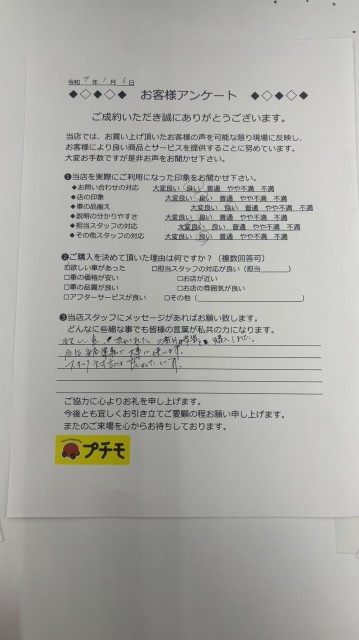 令和 7 年 1 月 6 日
◆◇◆◇◆ お客様アンケート ◆◇◆◇◆
ご成約いただき誠にありがとうございます。
当店では、お買い上げ頂いたお客様の声を可能な限り現場に反映し、
お客様により良い商品とサービスを提供することに努めています。
大変お手数ですが是非お声をお聞かせ下さい。
❶当店を実際にご利用になった印象をお聞かせ下さい。
◆お問い合わせの対応 大変良い 良い 普通 やや不満 不満
◆店の印象 大変良い 良い 普通 やや不満 不満
◆車の品揃え 大変良い 良い 普通 やや不満 不満
◆説明の分かりやすさ 大変良い 良い 普通 やや不満 不満
◆担当スタッフの対応 大変良い 良い 普通 やや不満 不満
◆その他スタッフの対応 大変良い 良い 普通 やや不満 不満
❷ご購入を決めて頂いた理由は何ですか？（複数回答可）
☑欲しい車があった □担当スタッフの対応が良い（担当 ）
□車の価格が安い □お店が近い
□車の品質が良い □お店の雰囲気が良い
□アフターサービスが良い □その他（ ）
❸当店スタッフにメッセージがあればお願い致します。
どんなに些細な事でも皆様の言葉が私共の力になります。
欲しい車
購入しました。
スタッフ
です。
ご協力に心よりお礼を申し上げます。
今後とも宜しくお引き立てご愛顧の程お願い申し上げます。
またのご来場を心からお待ちしております。
プチモ